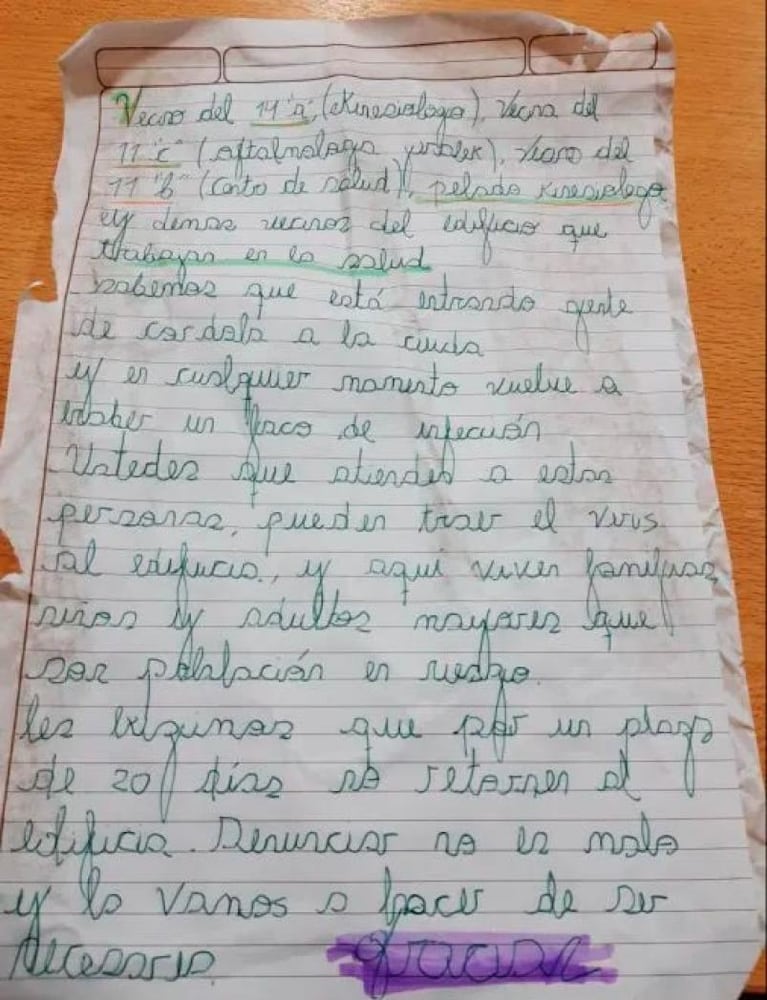 Vecino del 14 "a", (ekinesiologo), Vecina del
11 "c" (oftalmologa y), vecino del
11 "b" (Corto de salud), pelado kinesiologo
y demas vecinos del edificio que
trabajan en la salud
sabemos que está entrando gente
de cordoba a la ciuda
y en cualquier momento vuelve a
haber un foco de infección
Ustedes que atienden a estas
personas, pueden traer el virus
al edificio, y aqui viven familias,
niños y adultos mayores que
son población en riesgo.
les pedimos que por un plazo
de 20 días no retornen al
edificio. Denunciar no es malo
y lo vamos a hacer de ser
necesario. gracias